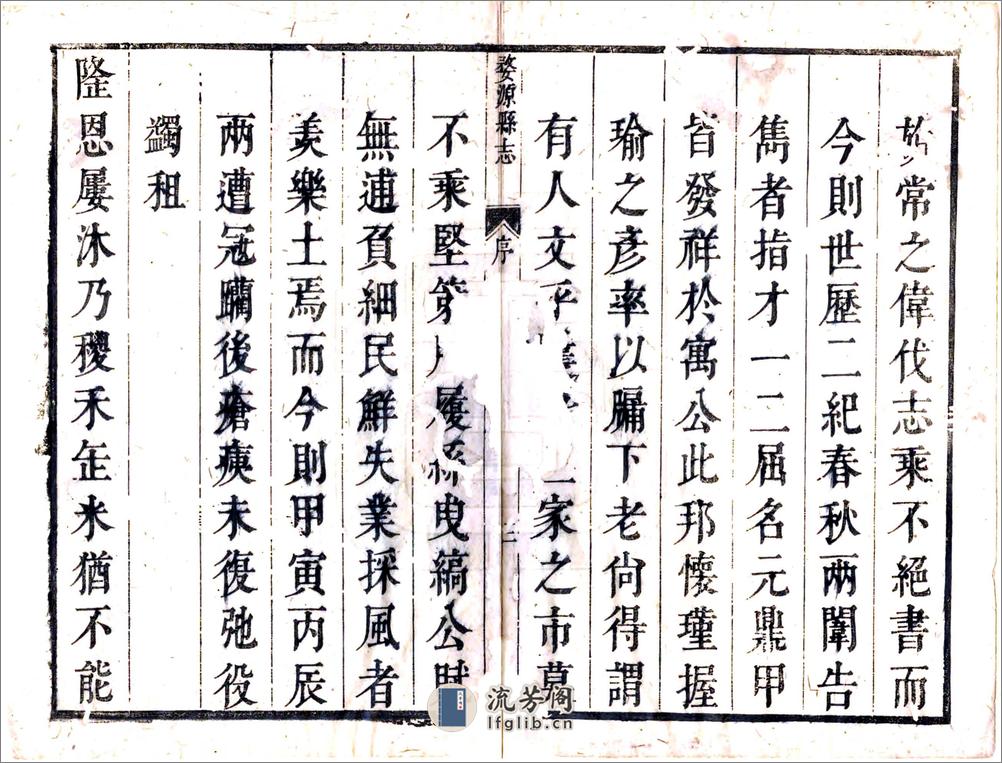 旂常之偉伐志乘不絕書而
今則世歷二紀春秋兩闈告
雋者指才一二屈名元鼎甲
皆發祥於寓公此邦懷瑾握
瑜之彥率以牖下老尙得謂
有人文乎 一家之市
婺源縣志
序
三
不乘堅 履絲曳縞公賦
無逋負細民鮮失業採風者
羙樂土焉而今則甲寅丙辰
兩遭冦躪後瘡痍未復弛役
蠲租
隆恩屢沐乃稷禾缶米猶不能
流芳阁
lfglib.cn